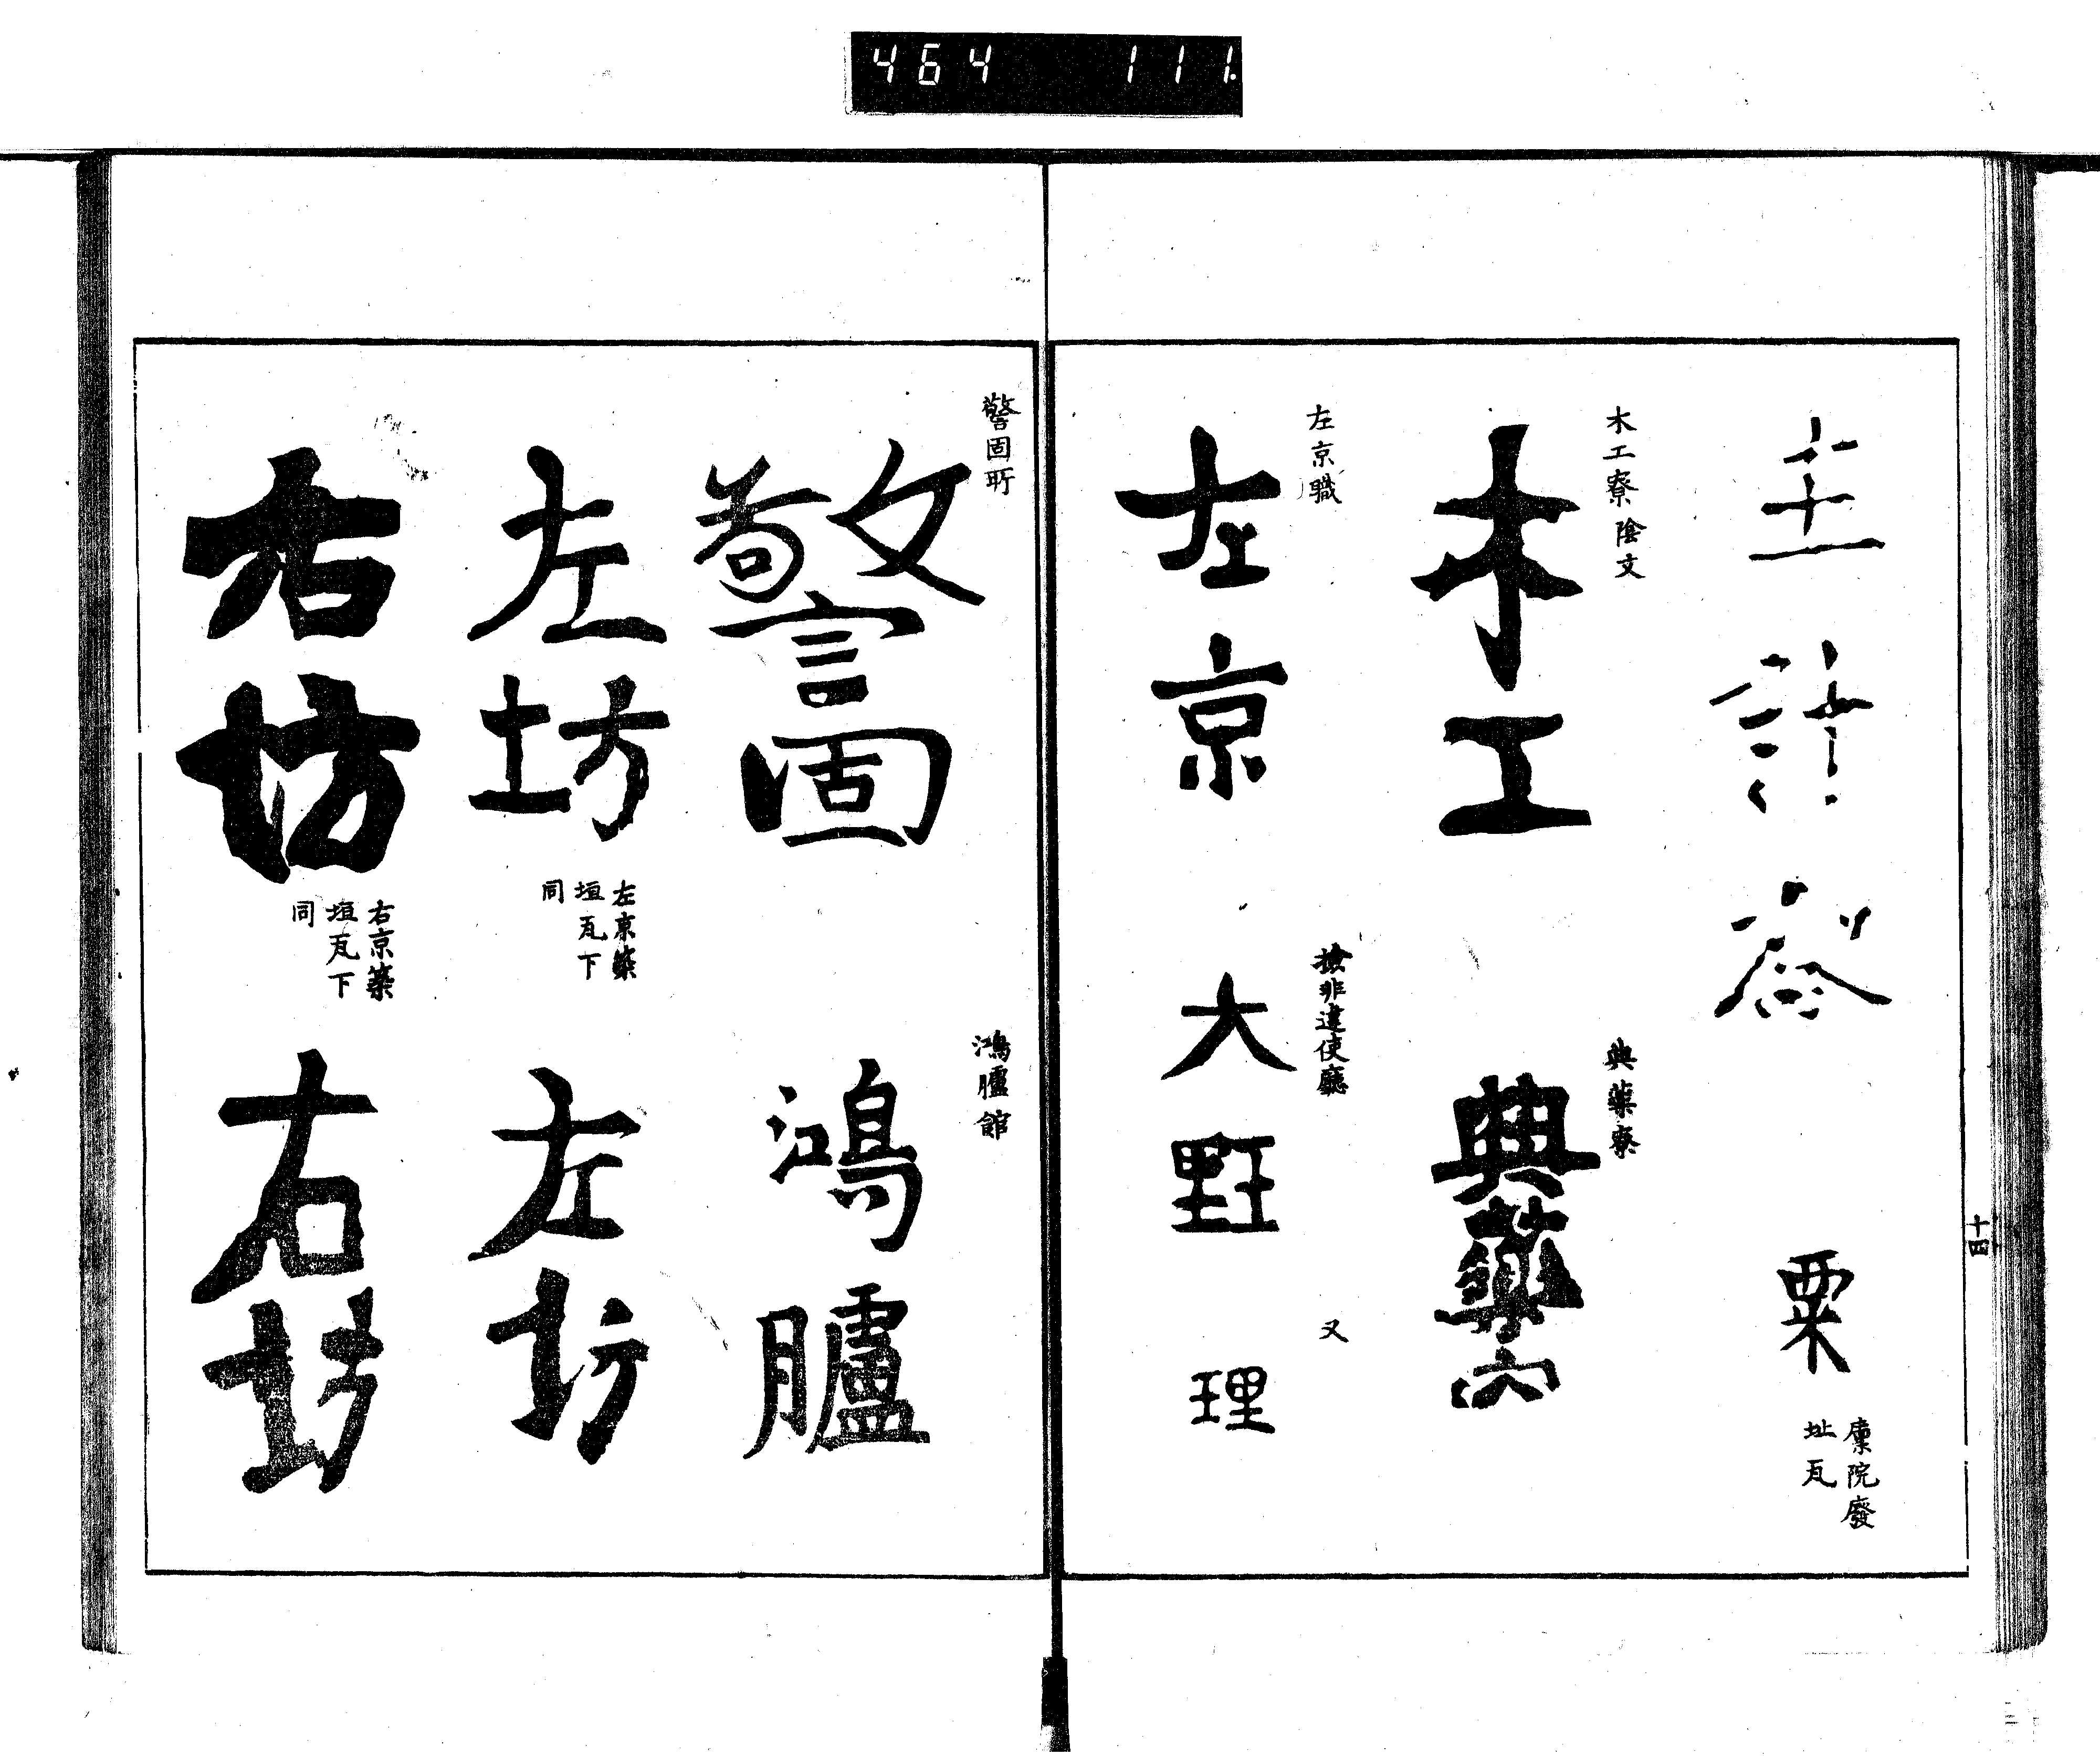 464 111.
主計寮
粟
廩院廢
址瓦
十四
木工寮陰文
木工
典薬寮
典薬六
左京職
左京
撿非違使廳
大理
又
理
警固所
警固
鴻臚館
鴻臚
左坊
左京築
垣瓦下
同
左坊
右坊
右京築
垣瓦下
同
右坊